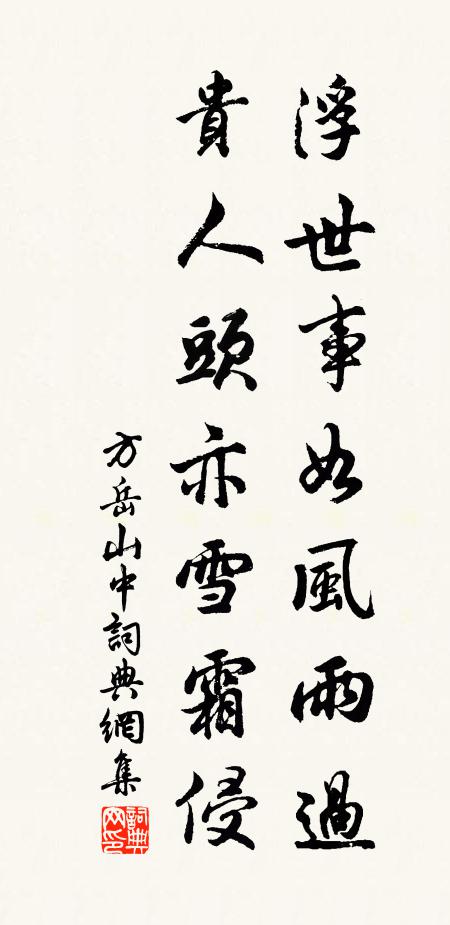 浮世事如風雨過
貴人頭亦雪霜侵
方岳山中詞典網集
詞典
网印